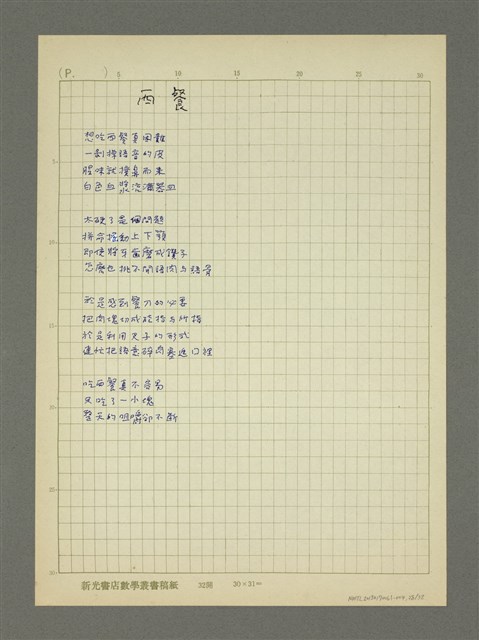 (P.      )
5 10 15 20 25 30
西餐
想吃西餐真困難
一剝掉語音的皮
腥味就撲鼻而來
白色血漿流滿器皿
5
太硬了是個問題
拼命擺動上下顎
即使將牙齒磨成鑽子
怎麼也挑不開語肉与語骨
10
於是感到餐刀的必要
把肉塊切成能指与所指
於是利用叉子的形式
連忙把語意碎肉塞進口裡
15
吃西餐真不容易
只吃了一小塊
整天的咀嚼卻不斷
20
25
30
新光書店數學叢書稿紙 32開 30×31=